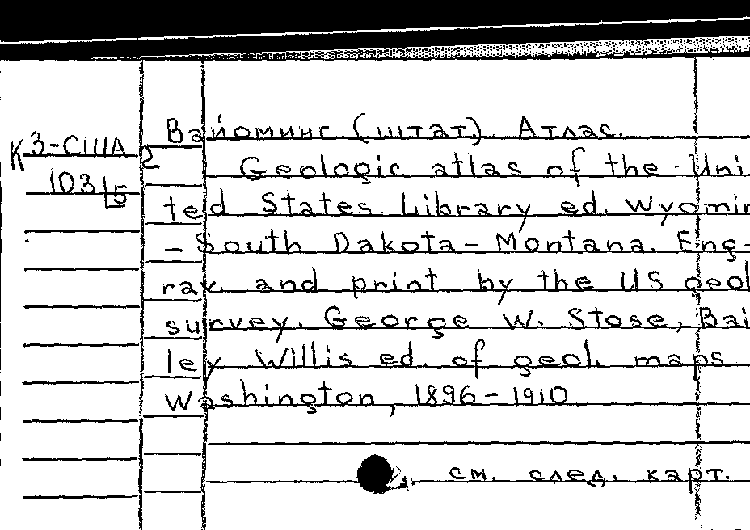 К 3-США 2
103/5
Вайоминг (штат). Атлас.
Geologic atlas of the Uni
ted States Library ed. Wyomin
- South Dakota - Montana. Eng-
rav. and print by the US geol
survey. George W. Stose, Bai
ley Willis ed. of geol. maps
Washington, 1896-1910
см. след. карт.